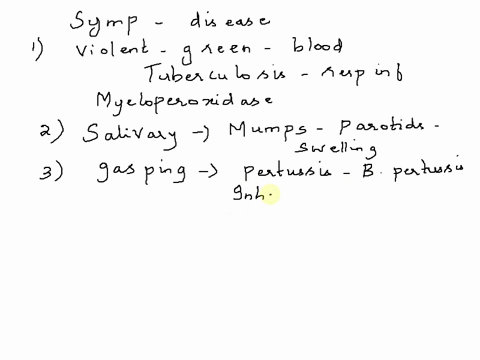 Symp - disease
1) Violent - green - blood
Tuberculosis - resp inf
Myeloperoxidase
2) Salivary -> Mumps - Parotids -
swelling
3) gasping -> Pertussis - B. pertussis
Inh.